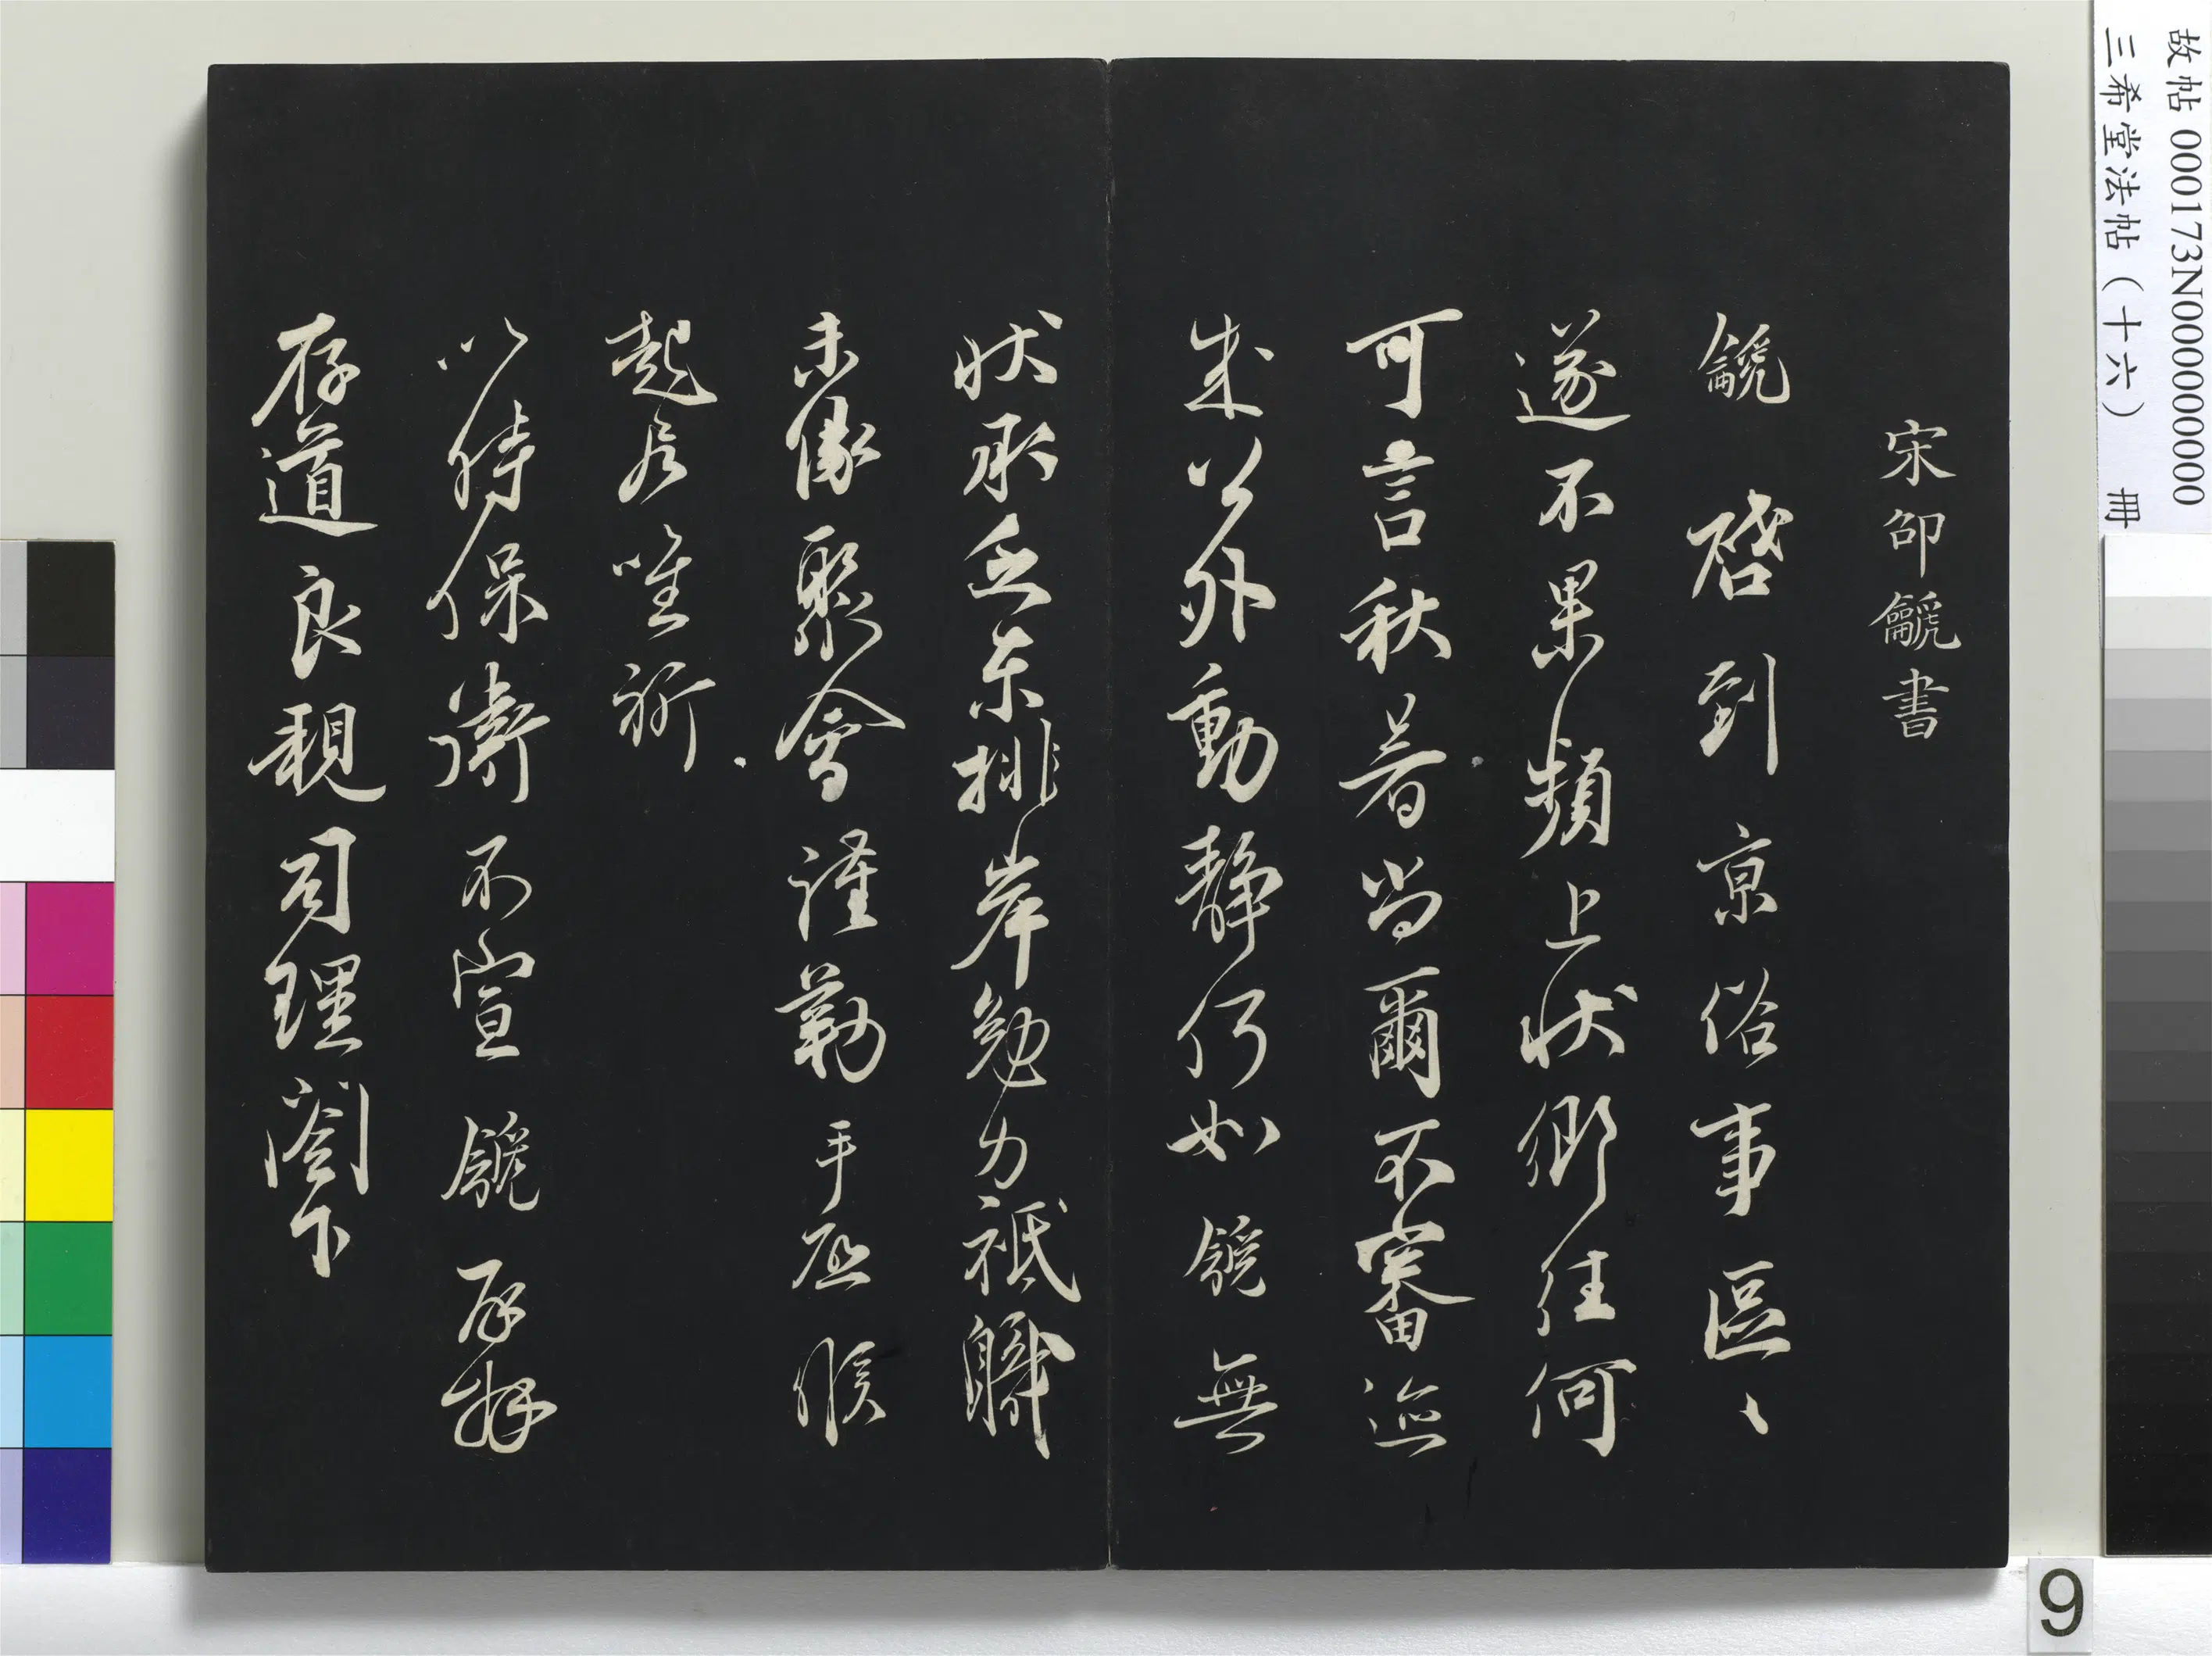 故帖 000173N000000000
三希堂法帖(十六) 冊
宋邵䶵書
䶵啓到京俗事區〻
遂不果頻上狀鄉往何
可言秋暑尚爾不審迩
来公外動靜何如䶵無
狀承乏東排岸勉力祗職
未緣聚會謹勒手啓候
起居唯祈
以時保衛不宣䶵再拜
存道良親司理閣下
9